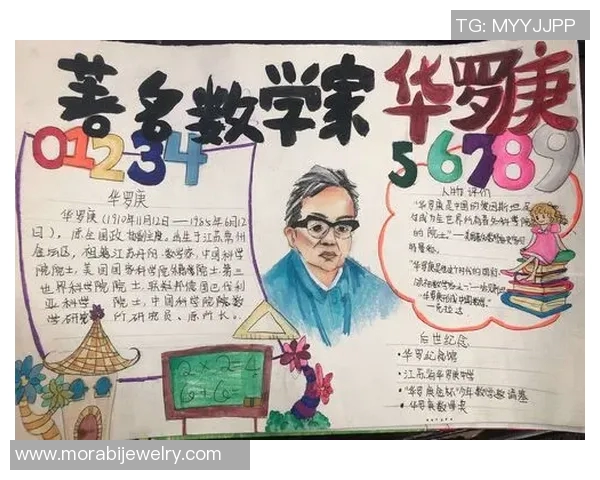 TG: MYYJJPP
著名数学家 华罗庚
0 1 2 3 4
5 6 7 8 9
华罗庚
华罗庚（1910年11月12日——1985年6月12
日），
出生于江苏常州
金坛区，祖籍江苏丹阳。数学家，中国科学
院院士，美国国家科学院外籍院士，第三
世界科学院院士，联邦德国巴伐利
亚科学院院士，中国科学院数
学研究所研究员、原所长。
人物评价
"华罗庚是中国的爱因斯坦，足
够成为全世界所有著名科学院
的院士。"
2×2=4
后世纪念
·华罗庚纪念馆
·江苏省华罗庚中学
·"华罗庚金杯"少年数学邀请赛
·华罗庚数学奖
www.morabijewelry.com